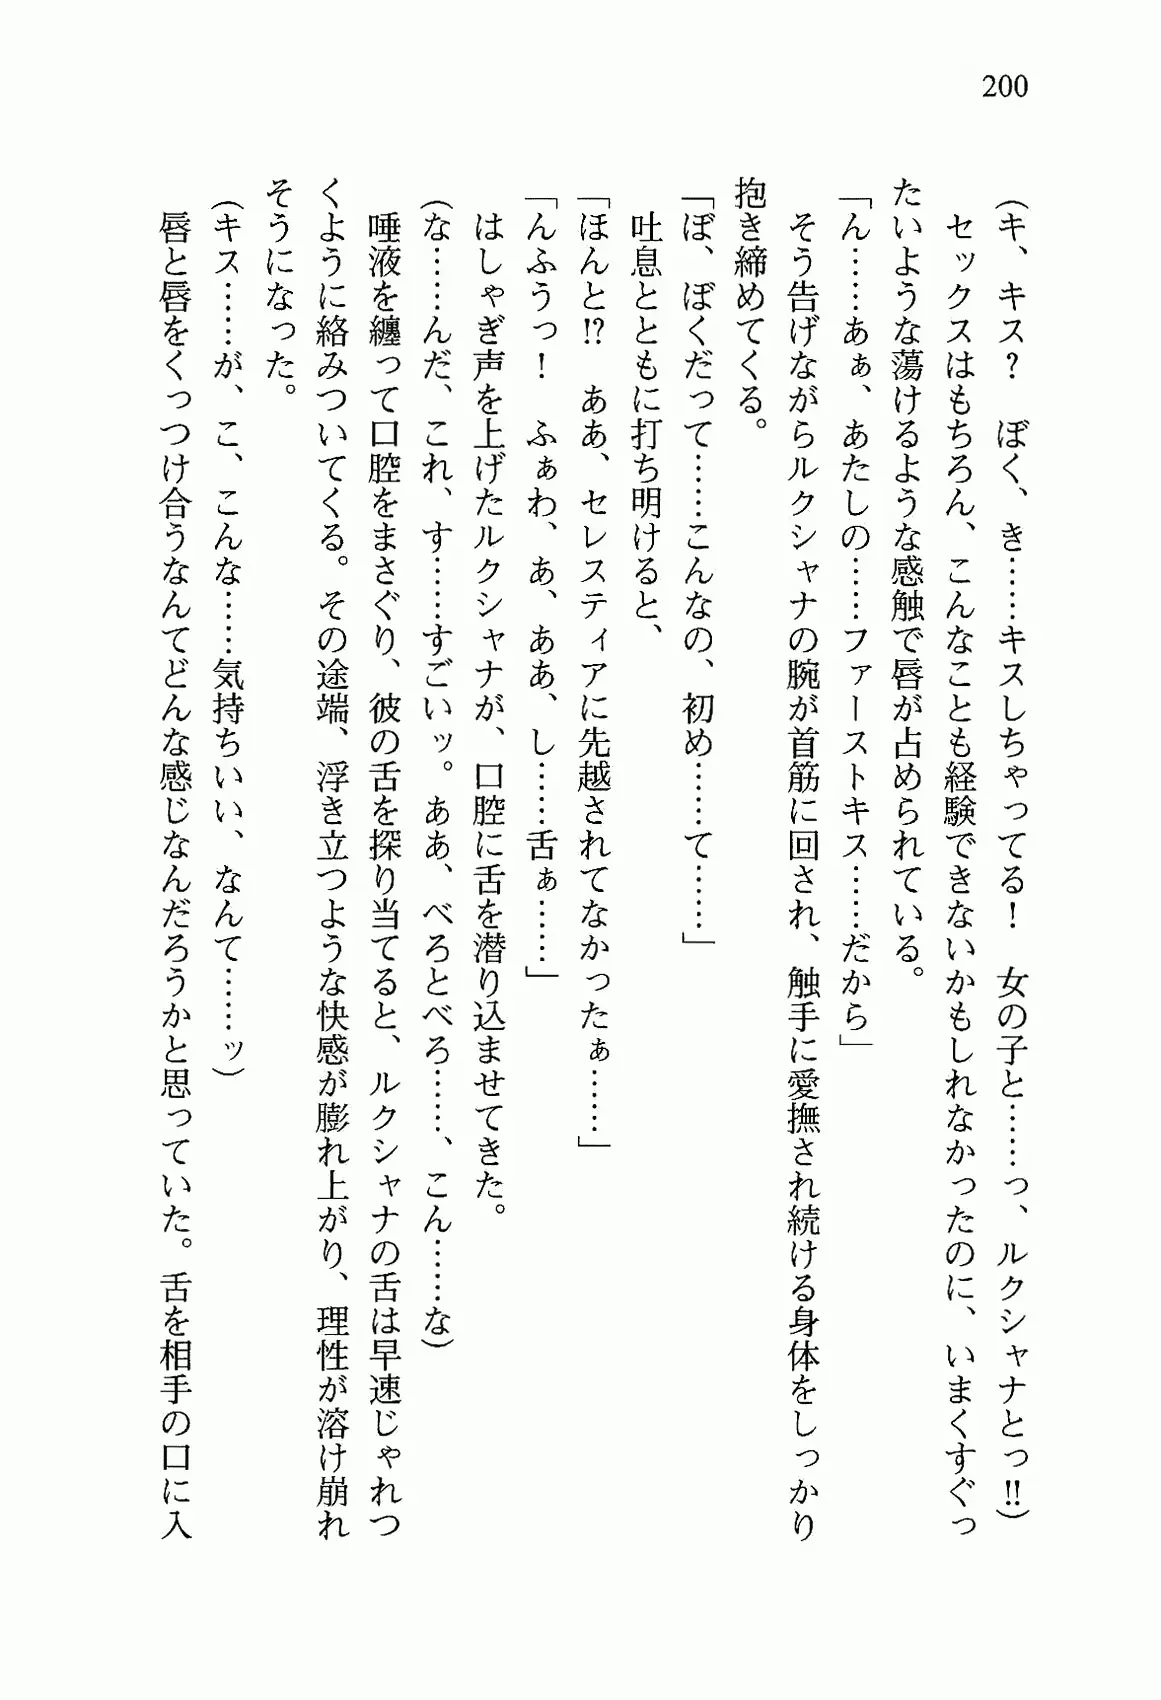 200
(キ、キス？　ぼく、き……キスしちゃってる！　女の子と……っ、ルクシャナとっ!!)
　セックスはもちろん、こんなことも経験できないかもしれなかったのに、いまくすぐっ
たいような蕩けるような感触で唇が占められている。
「ん……あぁ、あたしの……ファーストキス……だから」
　そう告げながらルクシャナの腕が首筋に回され、触手に愛撫され続ける身体をしっかり
抱き締めてくる。
「ぼ、ぼくだって……こんなの、初め……て……」
　吐息とともに打ち明けると、
「ほんと!?　ああ、セレスティアに先越されてなかったぁ……」
「んふうっ！　ふぁわ、あ、ああ、し……舌ぁ……」
　はしゃぎ声を上げたルクシャナが、口腔に舌を潜り込ませてきた。
(な……んだ、これ、す……すごいッ。ああ、べろとべろ……、こん……な)
　唾液を纏って口腔をまさぐり、彼の舌を探り当てると、ルクシャナの舌は早速じゃれつ
くように絡みついてくる。その途端、浮き立つような快感が膨れ上がり、理性が溶け崩れ
そうになった。
(キス……が、こ、こんな……気持ちいい、なんて……ッ)
　唇と唇をくっつけ合うなんてどんな感じなんだろうかと思っていた。舌を相手の口に入